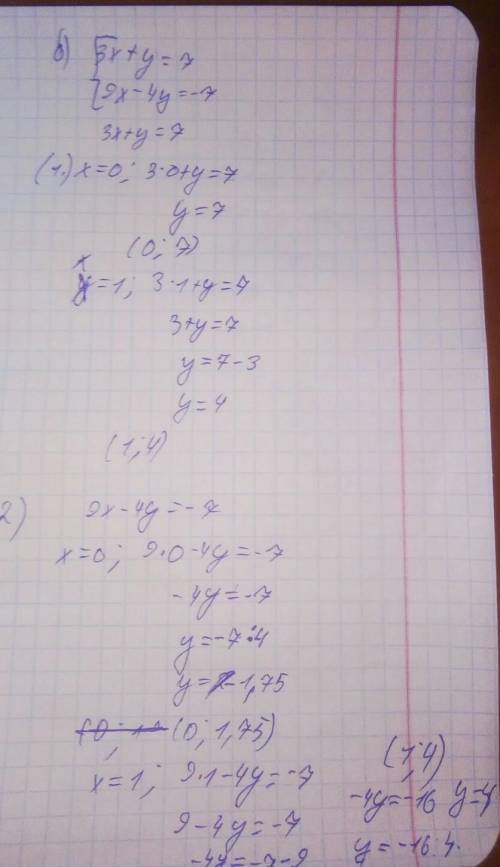 б) 3x+y=7
9x-4y=-7
3x+y=7
(1.) x=0; 3·0+y=7
y=7
(0; 7)
x=1; 3·1+y=7
3+y=7
y=7-3
y=4
(1; 4)
2) 9x-4y=-7
x=0; 9·0-4y=-7
-4y=-7
y=-7:4
y=-1,75
(0; 1,75)
x=1; 9·1-4y=-7
9-4y=-7
-4y=-7-9
(1; 4)
-4y=-16 y=4
y=-16:4.